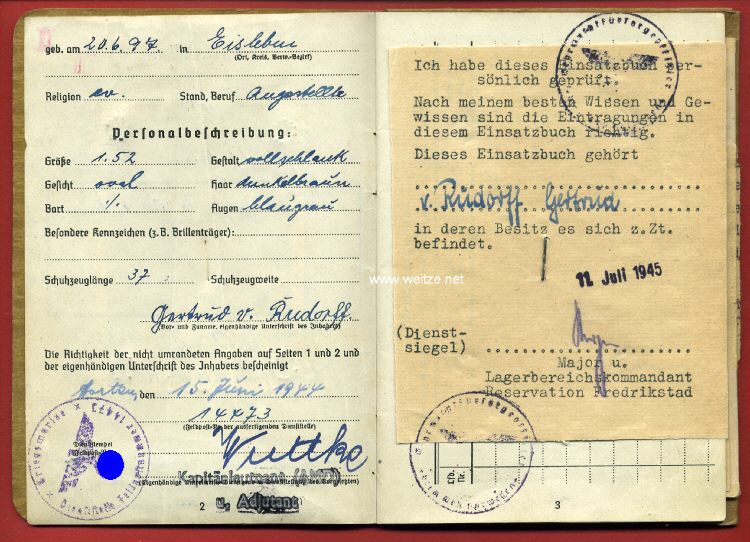 geb. am 20.6.97 in Eisleben
(Ort, Kreis, Verw.-Bezirk)
Religion ev. Stand, Beruf Angestellte
Personalbeschreibung:
Größe 1.52 Gestalt vollschlank
Gesicht oval Haar dunkelbraun
Bart ·/. Augen blaugrau
Besondere Kennzeichen (z. B. Brillenträger):
Schuhzeuglänge 37 Schuhzeugweite
Gertrud v. Rudorff
(Vor- und Zuname, eigenhändige Unterschrift des Inhabers)
Die Richtigkeit der nicht umrandeten Angaben auf Seiten 1 und 2 und
der eigenhändigen Unterschrift des Inhabers bescheinigt
Horten, den 15. Juni 1944
14473
(Feldpostnr. der ausfertigenden Dienststelle)
Kriegsmarine
Dienststelle Feldpostnummer 14473
Wuttke
Kapitänleutnant
u. Adjutant
2
Ich habe dieses Einsatzbuch per-
sönlich geprüft.
Nach meinem besten Wissen und Ge-
wissen sind die Eintragungen in
diesem Einsatzbuch richtig.
Dieses Einsatzbuch gehört
v. Rudorff Gertrud
in deren Besitz es sich z.Zt.
befindet.
www.weitze.net
11. Juli 1945
(Dienst-
siegel)
Major u.
Lagerbereichskommandant
Reservation Fredrikstad
3